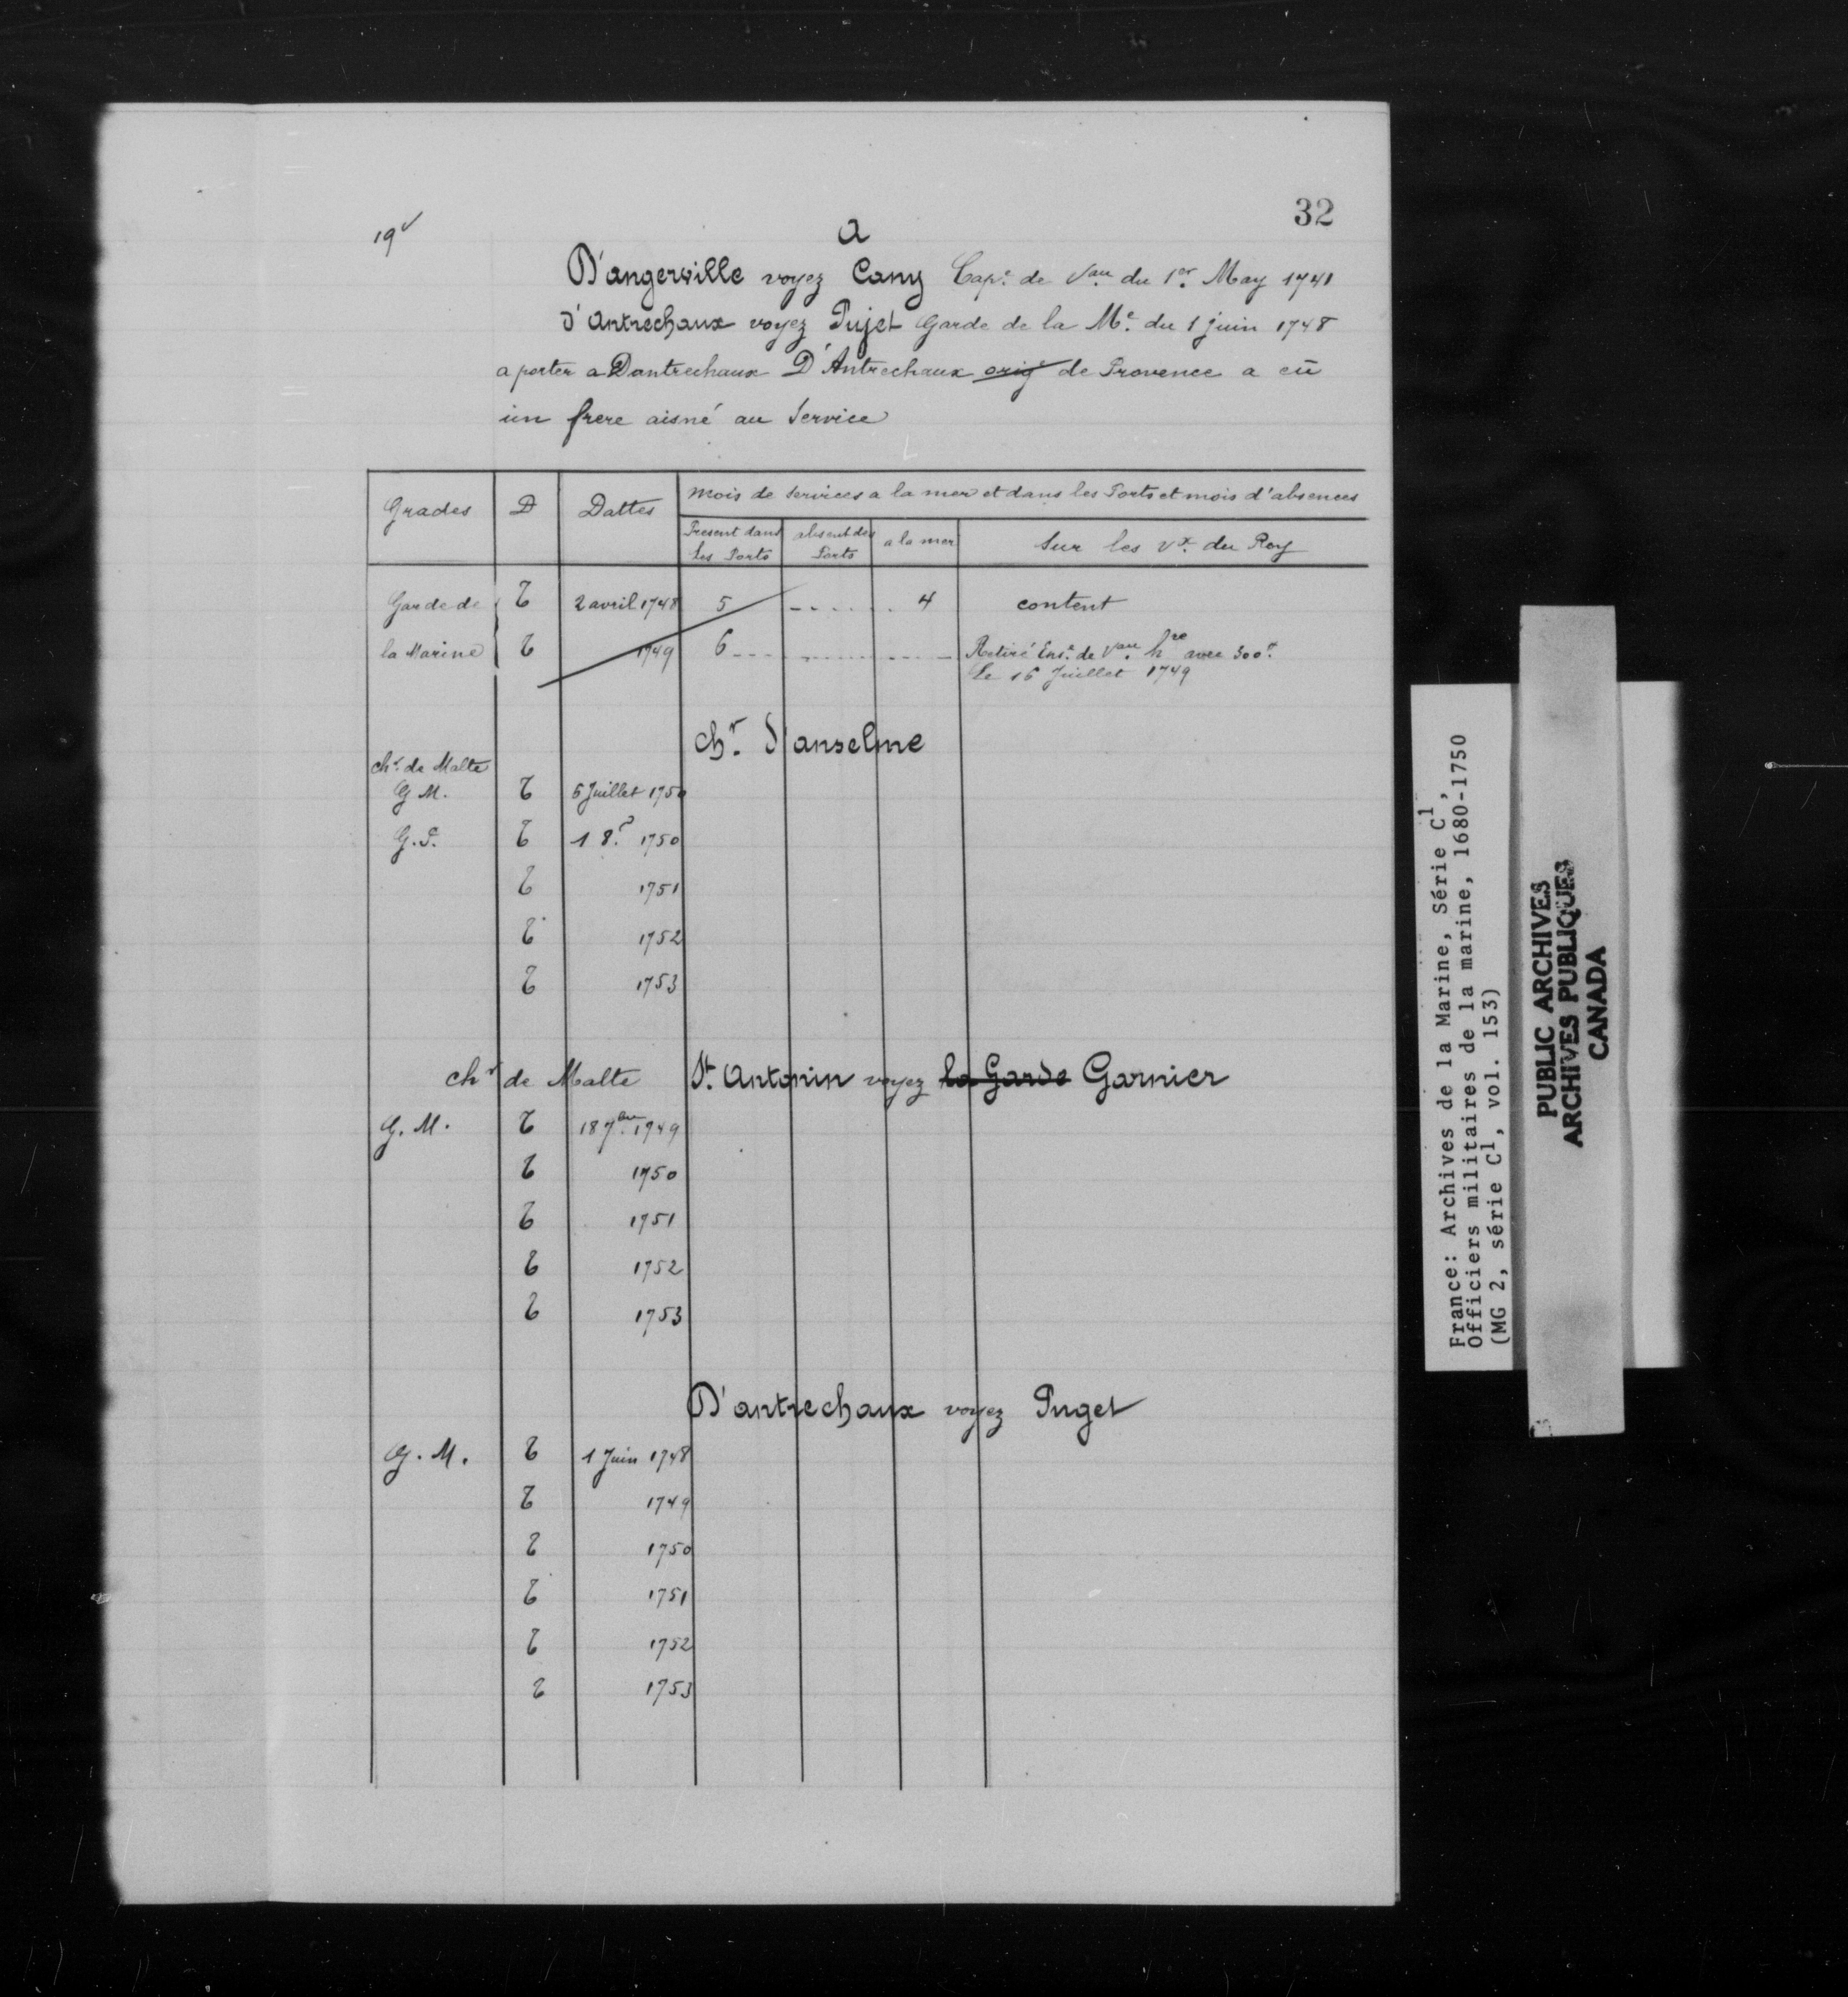 32
19v
a
D'angerville voyez Cany Cap.e de Vau. du 1er. May 1741
d'Antrechaux voyez Pujet Garde de la Me. du 1 juin 1748
a porter a Dantrechaux D'Antrechaux orige de Provence a eü
un frere aisné au Service
Grades D Dattes mois de services a la mer et dans les Ports et mois d'absences
Present dans les Ports absent des Ports a la mer Sur les Vx. du Roy
Garde de T 2 avril 1748 5 ...... 4 content
la Marine T 1749 6 ... Retiré Ens.e de Vau. hre avec 300.
Le 16 Juillet 1749
chr. d'anselme
chr. de Malte
G M. T 6 Juillet 1750
G.P. T 1 8.e 1750
T 1751
T 1752
T 1753
chr de Malte St. Antonin voyez la Garde Garnier
G. M. T 18 7bre. 1749
T 1750
T 1751
T 1752
T 1753
D'antrechaux voyez Puget
G. M. T 1 Juin 1748
T 1749
T 1750
T 1751
T 1752
T 1753
France: Archives de la Marine, Série C1,
Officiers militaires de la marine, 1680-1750
(MG 2, série C1, vol. 153)
PUBLIC ARCHIVES
ARCHIVES PUBLIQUES
CANADA